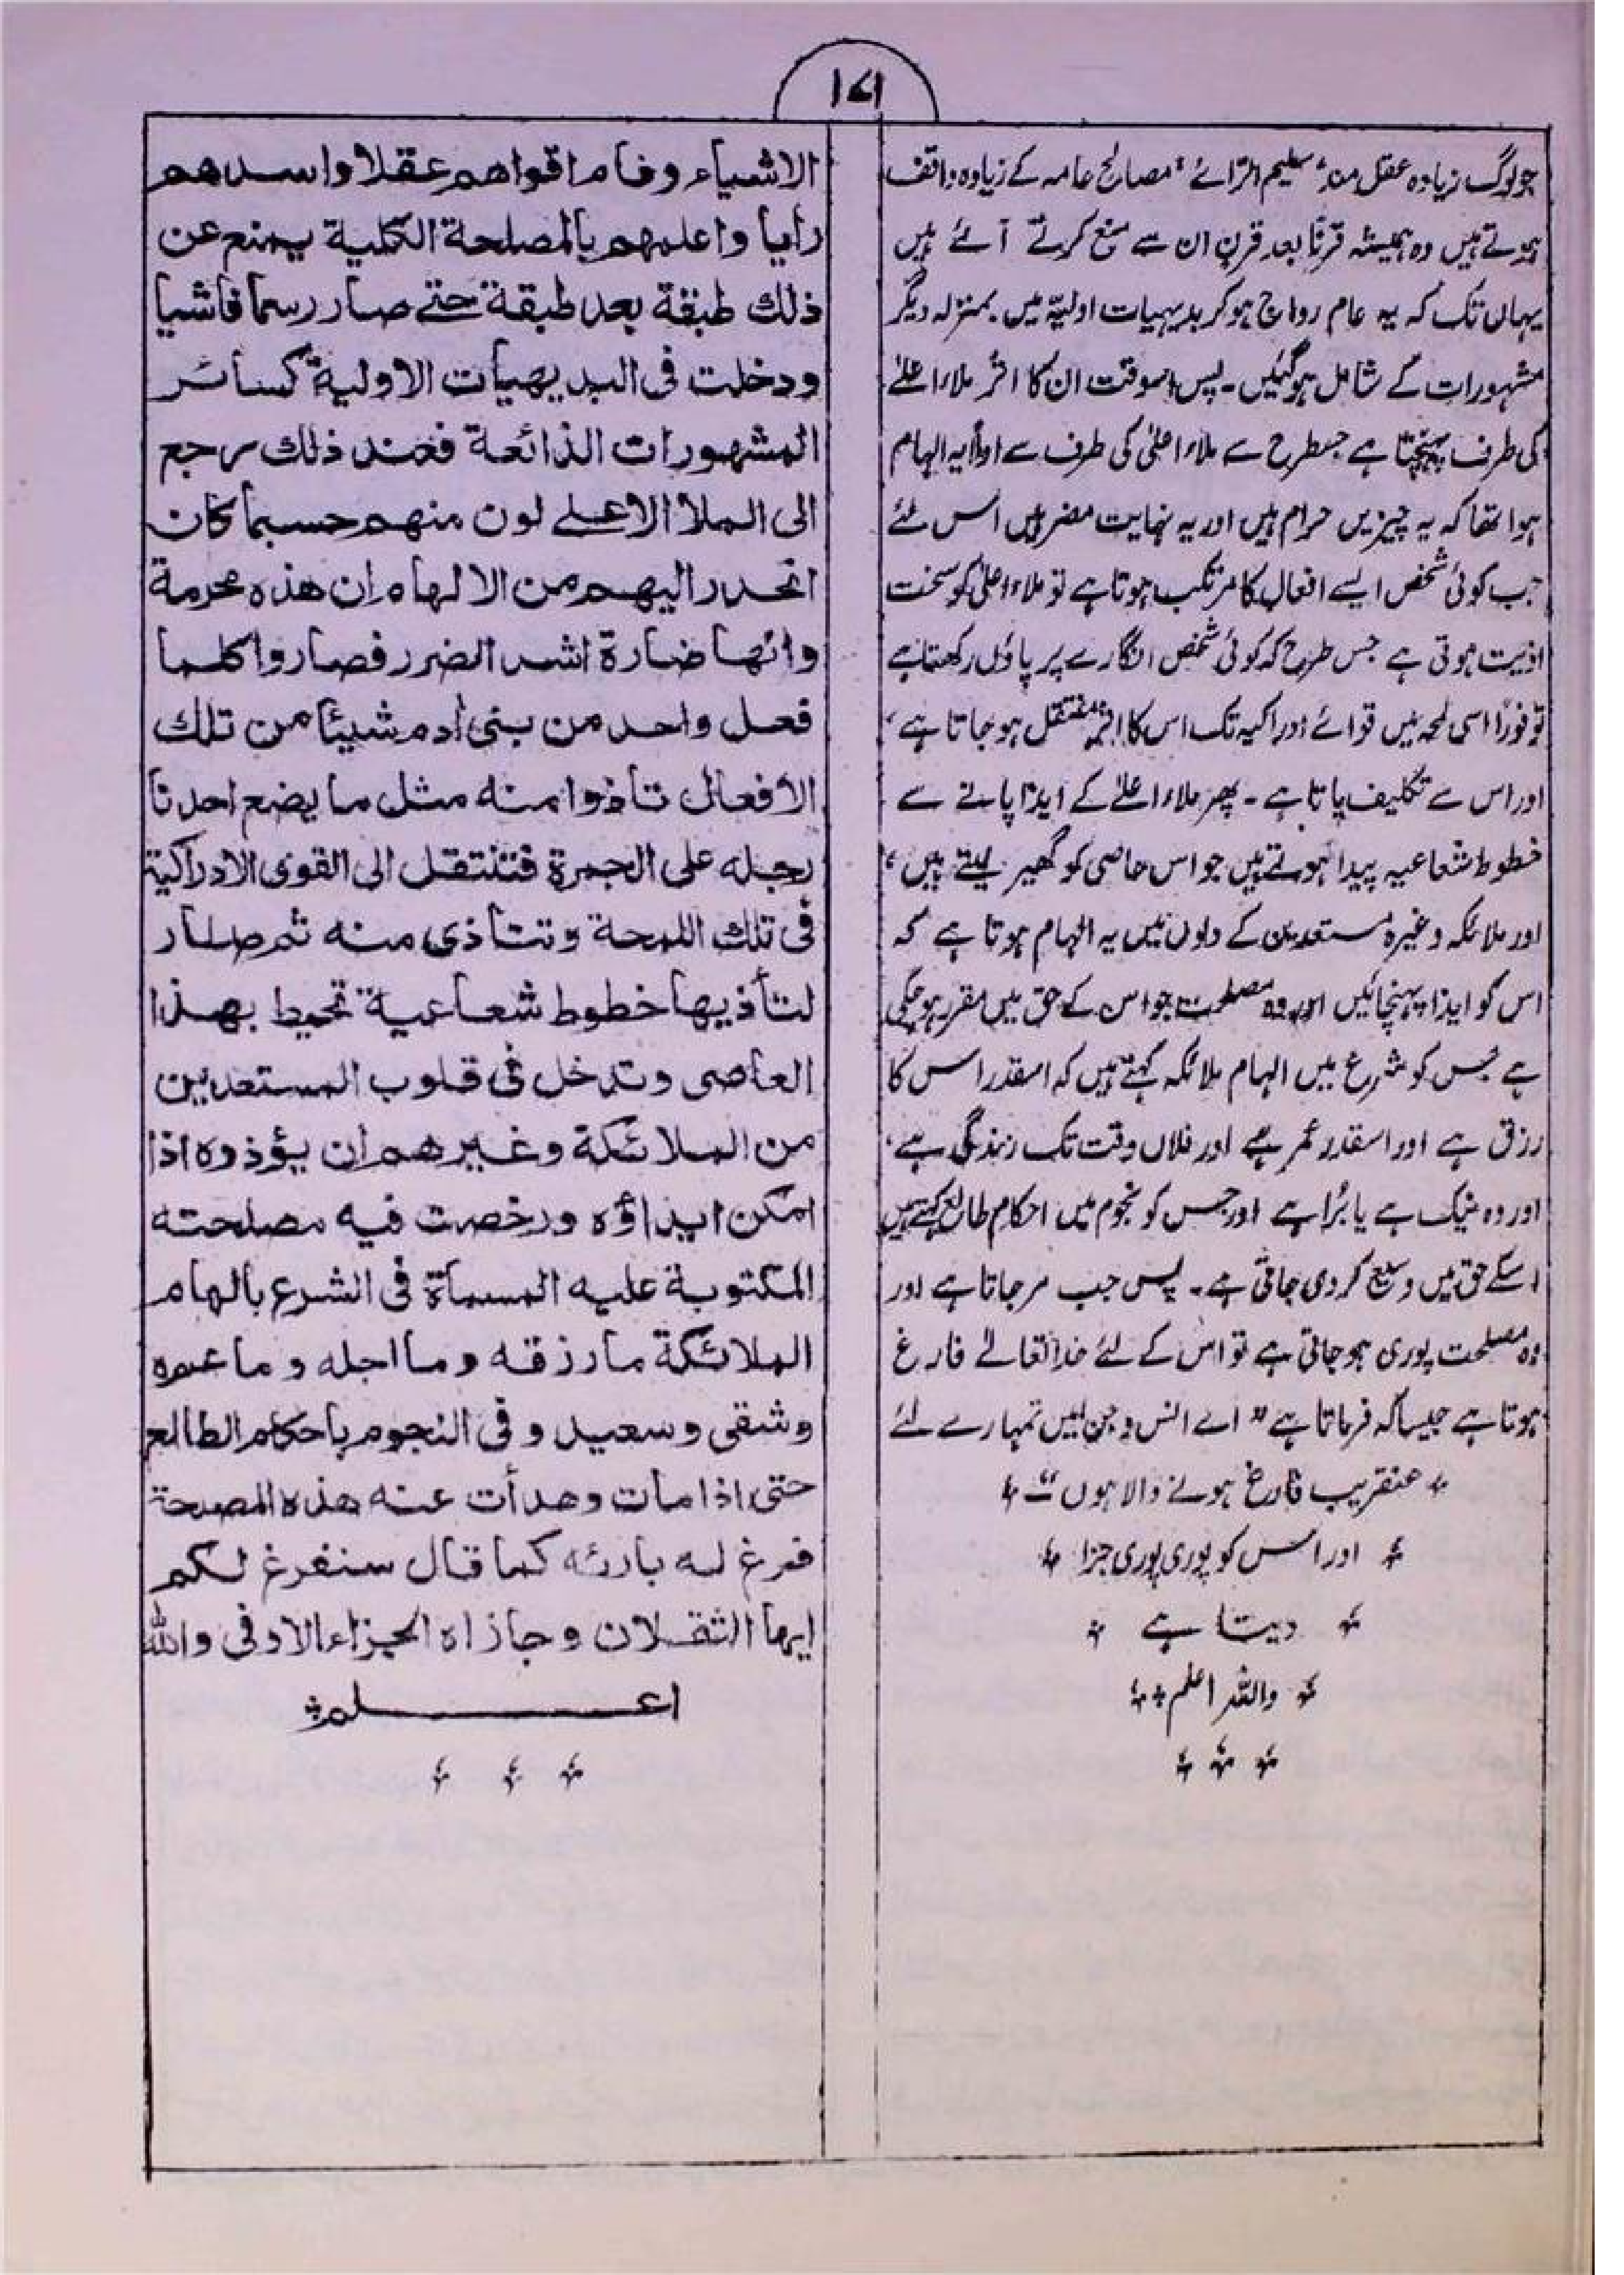 ۱۷۱
جو لوگ زیادہ عقل مند، سلیم الرّائے، مصالح عامہ کے زیادہ واقف
ہوتے ہیں وہ ہمیشہ قرنًا بعد قرن ان سے منع کرتے آئے ہیں
یہاں تک کہ یہ عام رواج ہوکر بدیہیات اولیّہ میں بمنزلہ دیگر
مشہورات کے شامل ہوگئیں۔ پس اسوقت ان کا اثر ملاء اعلےٰ
کی طرف پہنچتا ہے جسطرح سے ملاء اعلیٰ کی طرف سے اولاً یہ الہام
ہوا تھا کہ یہ چیزیں حرام ہیں اور یہ نہایت مضر ہیں اس لئے
جب کوئی شخص ایسے افعال کا مرتکب ہوتا ہے تو ملاء اعلیٰ کو سخت
اذیت ہوتی ہے جس طرح کہ کوئی شخص انگارے پر پاؤں رکھتا ہے
تو فورًا اسی لمحہ میں قوائے ادراکیہ تک اس کا اثر منتقل ہو جاتا ہے،
اور اس سے تکلیف پاتا ہے۔ پھر ملاء اعلےٰ کے ایذا پانے سے
خطوط شعاعیہ پیدا ہوتے ہیں جو اس عاصی کو گھیر لیتے ہیں،
اور ملائکہ وغیرہ مستعدین کے دلوں میں یہ الہام ہوتا ہے کہ
اس کو ایذا پہنچائیں اور وہ مصلحت جو اس کے حق میں مقرر ہو چکی
ہے جس کو شرع میں الہام ملائکہ کہتے ہیں کہ اسقدر اس کا
رزق ہے اور اسقدر عمر ہے اور فلاں وقت تک زندگی ہے،
اور وہ نیک ہے یا بُرا ہے اور جس کو نجوم میں احکام طالع کہتے ہیں
اسکے حق میں وسیع کر دی جاتی ہے۔ پس جب مر جاتا ہے اور
وہ مصلحت پوری ہو جاتی ہے تو اس کے لئے خدا تعالےٰ فارغ
ہوتا ہے جیسا کہ فرماتا ہے "اے انس و جن میں تمہارے لئے
عنقریب فارغ ہونے والا ہوں"
اور اس کو پوری پوری جزا
دیتا ہے
واللہ اعلم
الاشیاء وفاما اقواهم عقلا واسدهم
رایا واعلمهم بالمصلحة الکلیة یمنع عن
ذلك طبقة بعد طبقة حتے صار رسما فاشیا
ودخلت فی البدیهیات الاولیة کسائر
المشهورات الذائعة فعند ذلك یرجع
الی الملأ الاعلے لون منهم حسبما کان
انحدر الیهم من الالهام ان هذه محرمة
وانها ضارة اشد الضرر فصاروا کلما
فعل واحد من بنی أدم شیئا من تلك
الافعال تأذوا منه مثل ما یضع احدنا
رجله علی الجمرة فتنتقل الی القوی الادراکیة
فی تلك اللمحة وتتأذی منه ثم صار
لتأذیها خطوط شعاعیة تحیط بهذا
العاصی وتدخل فی قلوب المستعدین
من الملائکة وغیرهم ان یؤذوه اذا
امکن ایذاؤه ورخصت فیه مصلحته
المکتوبة علیه المسماة فی الشرع بالهام
الملائکة ما رزقه وما اجله وما عمره
وشقی وسعید وفی النجوم باحکام الطالع
حتی اذا مات وهدأت عنه هذه المصلحة
فرغ له بارئه کما قال سنفرغ لکم
ایها الثقلان وجازاه الجزاء الاوفی والله
اعلم